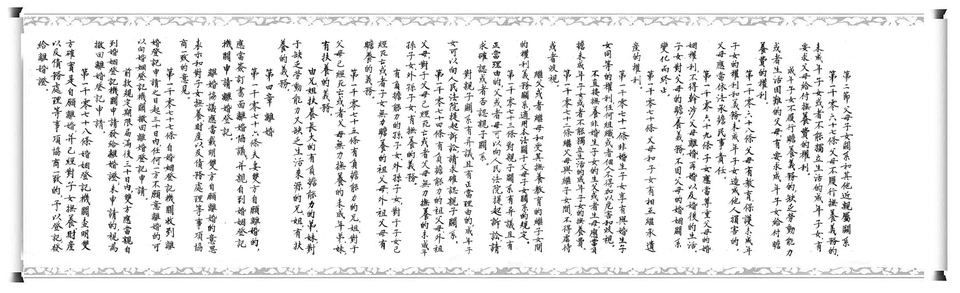 第二節父母子女關系和其他近親屬關系
第一千零六十七條父母不履行撫養義務的，
未成年子女或者不能獨立生活的成年子女，有
要求父母給付撫養費的權利。
成年子女不履行贍養義務的，缺乏勞動能力
或者生活困難的父母，有要求成年子女給付贍
養費的權利。
第一千零六十八條父母有教育、保護未成年
子女的權利和義務。未成年子女造成他人損害的，
父母應當依法承擔民事責任。
第一千零六十九條子女應當尊重父母的婚
姻權利，不得幹涉父母離婚、再婚以及婚後的生活。
子女對父母的贍養義務，不因父母的婚姻關系
變化而終止。
第一千零七十條父母和子女有相互繼承遺
產的權利。
第一千零七十一條非婚生子女享有與婚生子
女同等的權利，任何組織或者個人不得加以危害和歧視。
不直接撫養非婚生子女的生父或者生母，應當負
擔未成年子女或者不能獨立生活的成年子女的撫養費。
第一千零七十二條繼父母與繼子女間，不得虐待
或者歧視。
繼父或者繼母和受其撫養教育的繼子女間
的權利義務關系，適用本法關于父母子女關系的規定。
第一千零七十三條對親子關系有異議且有
正當理由的，父或者母可以向人民法院提起訴訟，請
求確認或者否認親子關系。
對親子關系有異議且有正當理由的，成年子
女可以向人民法院提起訴訟，請求確認親子關系。
第一千零七十四條有負擔能力的祖父母、外祖
父母，對于父母已經死亡或者父母無力撫養的未成年
孫子女、外孫子女，有撫養的義務。
有負擔能力的孫子女、外孫子女，對于子女已
經死亡或者子女無力贍養的祖父母、外祖父母，有
贍養的義務。
第一千零七十五條有負擔能力的兄、姐，對于
父母已經死亡或者父母無力撫養的未成年弟、妹，
有扶養的義務。
由兄、姐扶養長大的有負擔能力的弟、妹，對
于缺乏勞動能力又缺乏生活來源的兄、姐，有扶
養的義務。
第四章 離婚
第一千零七十六條夫妻雙方自願離婚的，
應當簽訂書面離婚協議，並親自到婚姻登記
機關申請離婚登記。
離婚協議應當載明雙方自願離婚的意思
表示和對子女撫養、財產以及債務處理等事項協
商一致的意見。
第一千零七十七條自婚姻登記機關收到離
婚登記申請之日起三十日內，任何一方不願意離婚的，可
以向婚姻登記機關撤回離婚登記申請。
前款規定期限屆滿後三十日內，雙方應當親自
到婚姻登記機關申請發給離婚證；未申請的，視為
撤回離婚登記申請。
第一千零七十八條婚姻登記機關查明雙
方確實是自願離婚，並已經對子女撫養、財產
以及債務處理等事項協商一致的，予以登記，發
給離婚證。